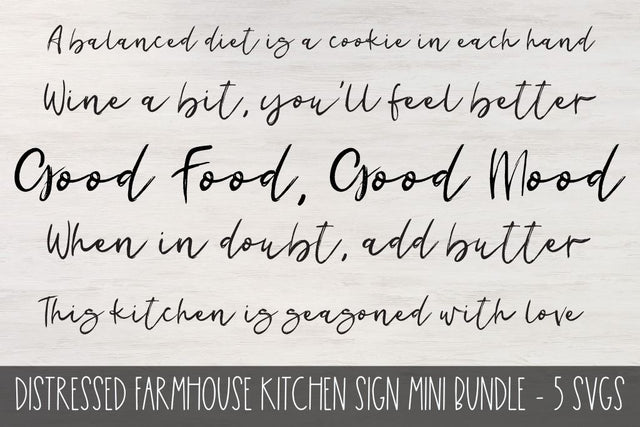 A balanced diet is a cookie in each hand
Wine a bit, you'll feel better
Good Food, Good Mood
When in doubt, add butter
This kitchen is seasoned with love
DISTRESSED FARMHOUSE KITCHEN SIGN MINI BUNDLE - 5 SVGS